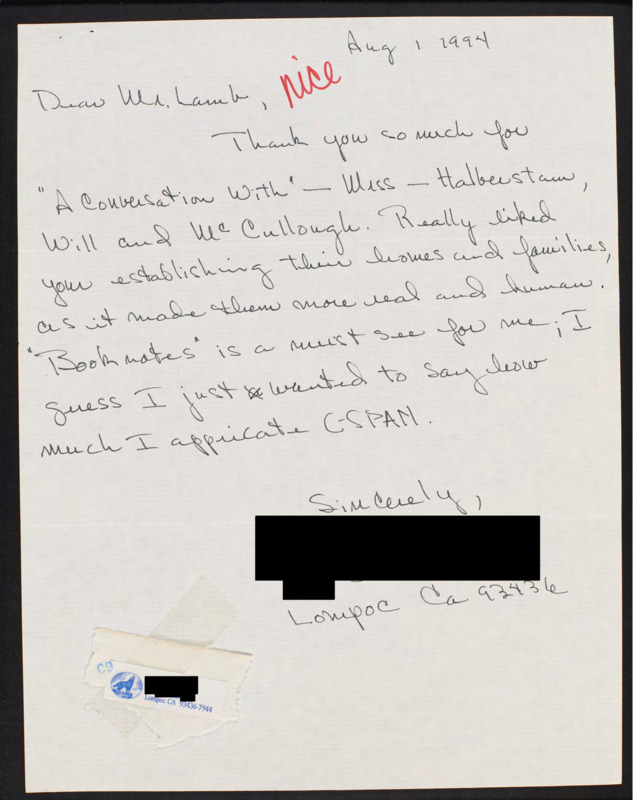 Aug 1 1994
Dear Mr. Lamb, nice
Thank you so much for
"A Conversation With" - Miss - Halberstam,
Will and McCullough. Really liked
your establishing their homes and families,
as it made them more real and human.
"Booknotes" is a must see for me; I
guess I just wanted to say how
much I appricate C-SPAN.
Sincerely,
Lompoc Ca 93436
C9
Lompoc CA 93436-7944